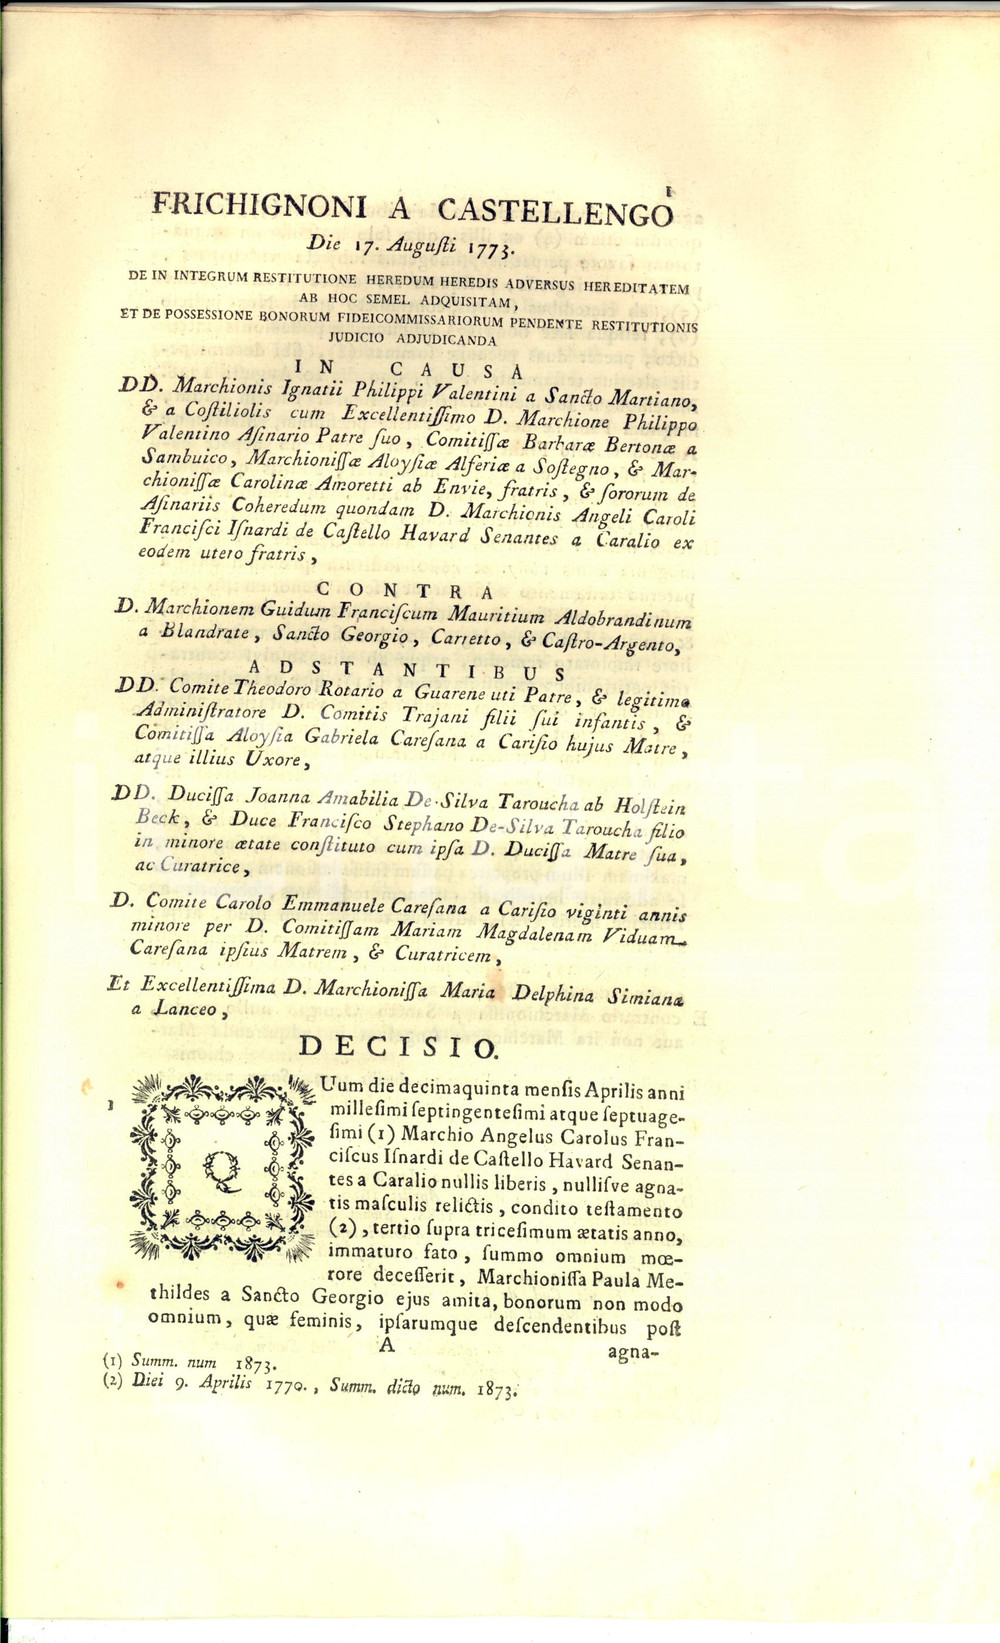 1
FRICHIGNONI A CASTELLENGO
Die 17. Auguſti 1773.
DE IN INTEGRUM RESTITUTIONE HEREDUM HEREDIS ADVERSUS HEREDITATEM
AB HOC SEMEL ADQUISITAM,
ET DE POSSESSIONE BONORUM FIDEICOMMISSARIORUM PENDENTE RESTITUTIONIS
JUDICIO ADJUDICANDA
IN CAUSA
DD. Marchionis Ignatii Philippi Valentini a Sancto Martiano,
& a Coſtiliolis cum Excellentiſſimo D. Marchione Philippo
Valentino Aſinario Patre ſuo, Comitiſſæ Barbaræ Bertonæ a
Sambuico, Marchioniſſæ Aloyſiæ Alferiæ a Soſtegno, & Mar-
chioniſſæ Carolinæ Amoretti ab Envie, fratris, & ſororum de
Aſinariis Coheredum quondam D. Marchionis Angeli Caroli
Franciſci Iſnardi de Caſtello Havard Senantes a Caralio ex
eodem utero fratris,
CONTRA
D. Marchionem Guidum Franciſcum Mauritium Aldobrandinum
a Blandrate, Sancto Georgio, Carretto, & Caſtro-Argento,
ADSTANTIBUS
DD. Comite Theodoro Rotario a Guarene uti Patre, & legitimo
Adminiſtratore D. Comitis Trajani filii ſui infantis, &
Comitiſſa Aloyſia Gabriela Careſana a Cariſio hujus Matre,
atque illius Uxore,
DD. Duciſſa Joanna Amabilia De-Silva Taroucha ab Holſtein
Beck, & Duce Franciſco Stephano De-Silva Taroucha filio
in minore ætate conſtituto cum ipſa D. Duciſſa Matre ſua,
ac Curatrice,
D. Comite Carolo Emmanuele Careſana a Cariſio viginti annis
minore per D. Comitiſſam Mariam Magdalenam Viduam
Careſana ipſius Matrem, & Curatricem,
Et Excellentiſſima D. Marchioniſſa Maria Delphina Simiana
a Lanceo,
DECISIO.
1 QUum die decimaquinta menſis Aprilis anni
milleſimi ſeptingenteſimi atque ſeptuage-
ſimi (1) Marchio Angelus Carolus Fran-
ciſcus Iſnardi de Caſtello Havard Senan-
tes a Caralio nullis liberis, nulliſve agna-
tis maſculis relictis, condito teſtamento
(2), tertio ſupra triceſimum ætatis anno,
immaturo fato, ſummo omnium mœ-
rore deceſſerit, Marchioniſſa Paula Me-
thildes a Sancto Georgio ejus amita, bonorum non modo
omnium, quæ feminis, ipſarumque deſcendentibus poſt
A agna-
(1) Summ. num 1873.
(2) Diei 9. Aprilis 1770., Summ. dicto num. 1873.